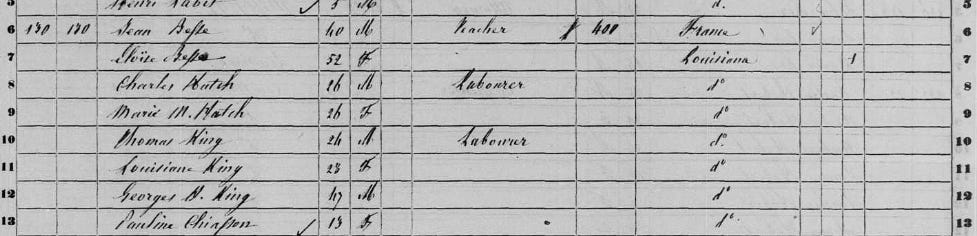 5 Henri Labit 3 M d. 5
6 130 130 Jean Besse 40 M Teacher $ 400 France 6
7 Eloïse Besse 52 F Louisiana 1 7
8 Charles Hatch 26 M Labourer do 8
9 Marie M. Hatch 26 F do 9
10 Thomas King 24 M Labourer do 10
11 Louisiane King 23 F do 11
12 Georges H. King M do 12
13 Pauline Chiasson 13 F do 13